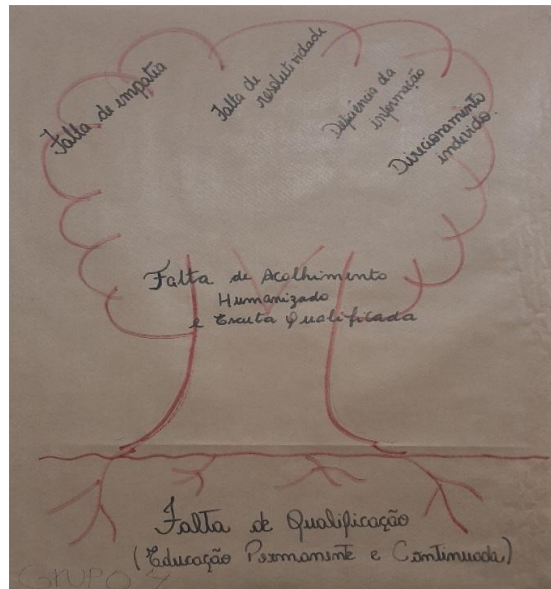 Falta de empatia
Falta de
resolutividade
Deficiência da
informação
Direcionamento
indevido.
Falta de Acolhimento
Humanizado
e Escuta Qualificada
Falta de Qualificação
(Educação Permanente e Continuada)
GRUPO